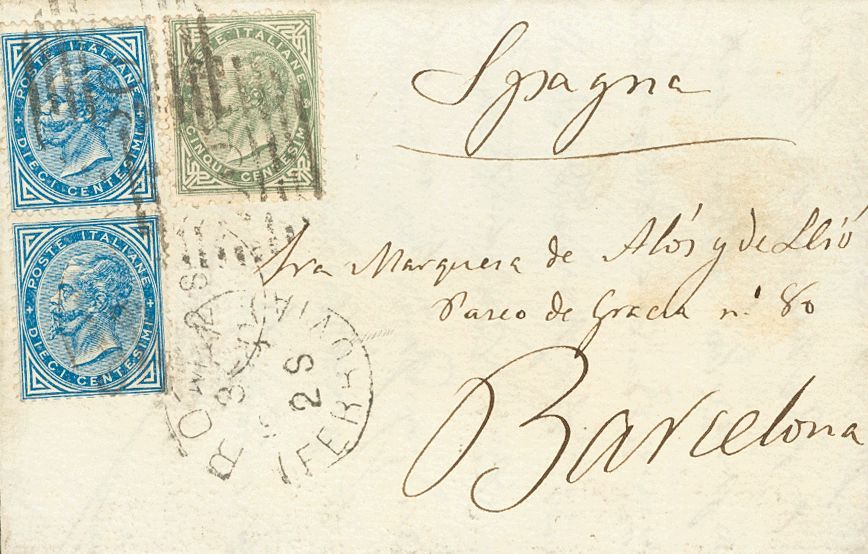 POSTE ITALIANE
DIECI CENTESIMI
POSTE ITALIANE
CINQUE CENTESIMI
POSTE ITALIANE
DIECI CENTESIMI
Spagna
Sra Marquesa de Alós y de Llió
Paseo de Gracia nº 80
Barcelona
FERROVIA
28